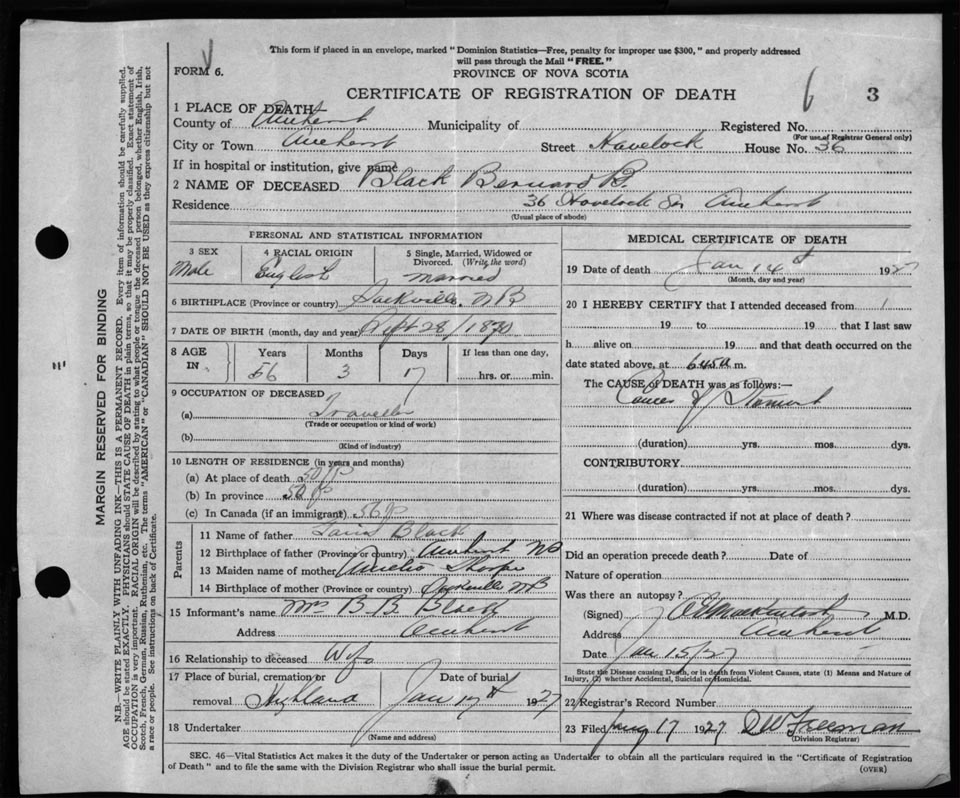 This form if placed in an envelope, marked " Dominion Statistics—Free, penalty for improper use $300, " and properly addressed
will pass through the Mail "FREE."
FORM 6.
PROVINCE OF NOVA SCOTIA
CERTIFICATE OF REGISTRATION OF DEATH 6 3
1 PLACE OF DEATH
County of Amherst Municipality of Registered No.
(For use of Registrar General only)
City or Town Amherst Street Havelock House No. 36
If in hospital or institution, give name
2 NAME OF DECEASED Black Bernard B.
Residence 36 Havelock St Amherst
(Usual place of abode)
PERSONAL AND STATISTICAL INFORMATION
3 SEX 4 RACIAL ORIGIN 5 Single, Married, Widowed or
Divorced. (Write the word)
Male English Married
6 BIRTHPLACE (Province or country) Sackville, NB
7 DATE OF BIRTH (month, day and year) Sept 28/1870
8 AGE IN Years Months Days If less than one day,
56 3 17 hrs. or min.
9 OCCUPATION OF DECEASED
(a) Traveller
(Trade or occupation or kind of work)
(b)
(Kind of industry)
10 LENGTH OF RESIDENCE (in years and months)
(a) At place of death 50 y
(b) In province 50 y
(c) In Canada (if an immigrant) 56 y
Parents
11 Name of father Black
12 Birthplace of father (Province or country) Amherst NS
13 Maiden name of mother Amelia Thorpe
14 Birthplace of mother (Province or country) Sackville NB
15 Informant's name Mrs B. B. Black
Address Amherst
16 Relationship to deceased Wife
17 Place of burial, cremation or Date of burial
removal Highland Jan 17th 1927
18 Undertaker
(Name and address)
MEDICAL CERTIFICATE OF DEATH
19 Date of death Jan 14th 192
(Month, day and year)
20 I HEREBY CERTIFY that I attended deceased from
19 to 19 that I last saw
h alive on 19 and that death occurred on the
date stated above, at 645a m.
The CAUSE of DEATH was as follows:—
Cancer of Stomach
(duration) yrs. mos. dys.
CONTRIBUTORY
(duration) yrs. mos. dys.
21 Where was disease contracted if not at place of death?
Did an operation precede death? Date of
Nature of operation
Was there an autopsy?
(Signed) M.D.
Address Amherst
Date Jan 15/27
State the Disease causing Death, or in death from Violent Causes, state (1) Means and Nature of
Injury, (2) whether Accidental, Suicidal or Homicidal.
22 Registrar's Record Number
23 Filed 17 1927 Freeman
(Division Registrar)
SEC. 46—Vital Statistics Act makes it the duty of the Undertaker or person acting as Undertaker to obtain all the particulars required in the "Certificate of Registration
of Death " and to file the same with the Division Registrar who shall issue the burial permit. (OVER)
MARGIN RESERVED FOR BINDING
N.B.—WRITE PLAINLY WITH UNFADING INK—THIS IS A PERMANENT RECORD. Every item of information should be carefully supplied.
AGE should be stated EXACTLY. PHYSICIANS should STATE CAUSE OF DEATH in plain terms, so that it may be properly classified. Exact statement of
OCCUPATION is very important. RACIAL ORIGIN will be described by stating to what people or tongue the deceased person belonged, whether English, Irish,
Scotch, French, German, Russian, Ruthenian, etc. The terms "AMERICAN" or "CANADIAN" SHOULD NOT BE USED as they express citizenship but not
a race or people. See instructions on back of Certificate.